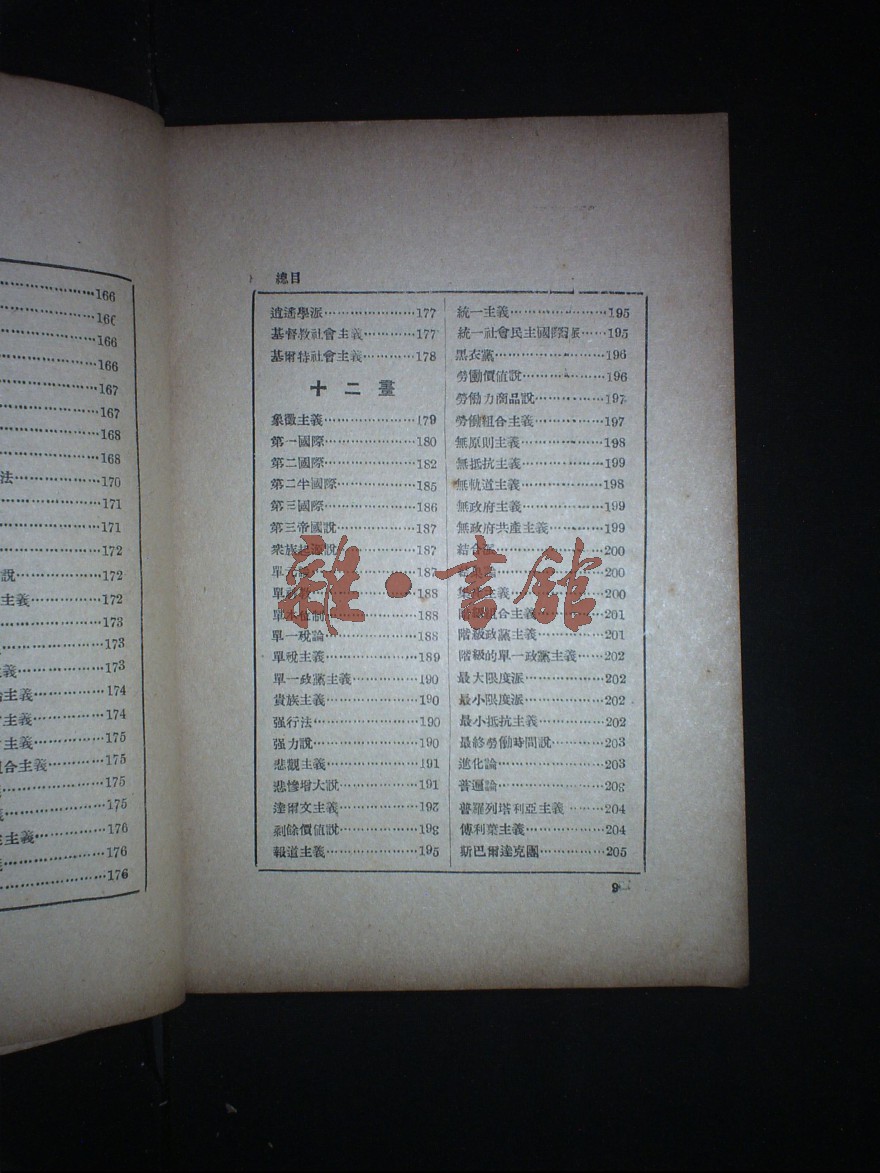 166
166
166
166
167
167
168
168
法 170
171
171
172
說 172
主義 172
173
義 173
主義 174
主義 174
主義 175
組合主義 175
175
義 175
主義 176
176
176
總目
逍遙學派 177
基督教社會主義 177
基爾特社會主義 178
十二畫
象徵主義 179
第一國際 180
第二國際 182
第二半國際 185
第三國際 186
第三帝國說 187
187
單 187
單 188
單 188
單一稅論 188
單稅主義 189
單一政黨主義 190
貴族主義 190
强行法 190
强力說 190
悲觀主義 191
悲慘增大說 191
達爾文主義 193
剩餘價值說 193
報道主義 195
統一主義 195
統一社會民主國際 195
黑衣黨 196
勞働價値說 196
勞働力商品說 197
勞働組合主義 197
無原則主義 198
無抵抗主義 199
無軌道主義 198
無政府主義 199
無政府共產主義 199
結合派 200
200
集 主義 200
階級組合主義 201
階級政黨主義 201
階級的單一政黨主義 202
最大限度派 202
最小限度派 202
最小抵抗主義 202
最終勞働時間說 203
進化論 203
普遍論 203
普羅列塔利亞主義 204
傅利葉主義 204
斯巴爾達克團 205
9
雜·書館